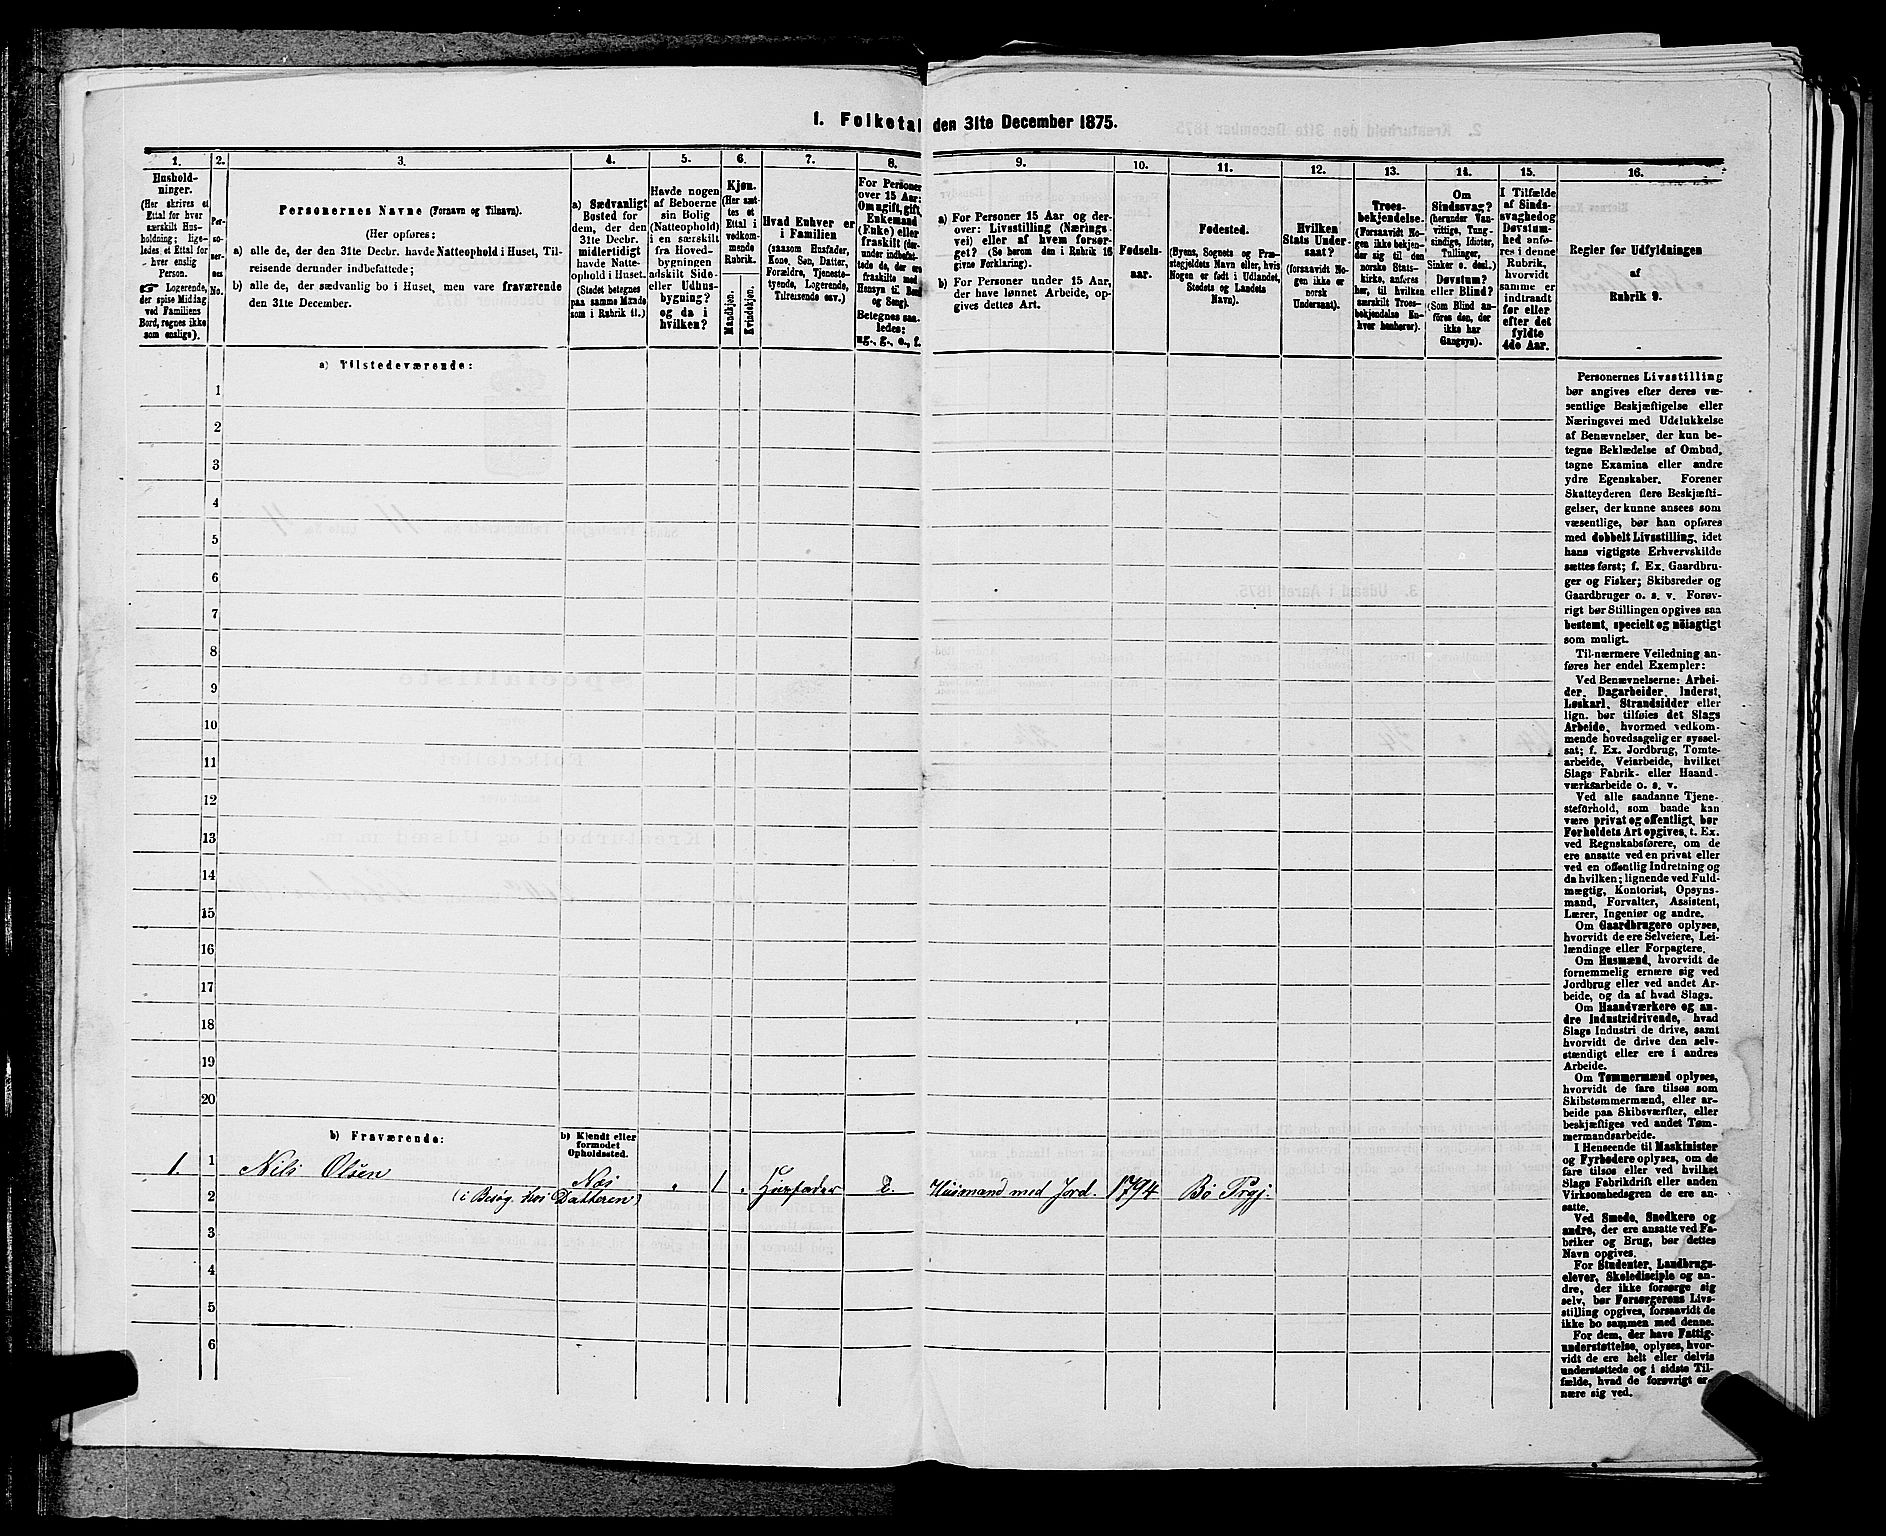 1. Folketal den 31te December 1875.
1. 2. 3. 4. 5. 6. 7. 8. 9. 10. 11. 12. 13. 14. 15. 16.
Hushold-
ninger.
(Her skrives et
Ettal for hver
særskilt Hus-
holdning; lige-
ledes et Ettal for
hver enslig
Person.
☞ Logerende,
der spise Middag
ved Familiens
Bord, regnes ikke
som enslige).
Per-
so-
ner-
nes
No.
Personernes Navne (Fornavn og Tilnavn).
(Her opføres:
a) alle de, der den 31te Decbr. havde Natteophold i Huset, Til-
reisende derunder indbefattede;
b) alle de, der sædvanlig bo i Huset, men vare fraværende
den 31te December.
a) Sædvanligt
Bosted for
dem, der den
31te Decbr.
midlertidigt
havde Natte-
ophold i Huset.
(Stedet betegnes
paa samme Maade
som i Rubrik 11.)
Havde nogen
af Beboerne
sin Bolig
(Natteophold)
i en særskilt
fra Hoved-
bygningen
adskilt Side-
eller Udhus-
bygning?
og da i
hvilken?
Kjøn.
(Her sæt-
tes et
Ettal i
vedkom-
mende
Rubrik.
Mandkjøn.
Kvindekjøn.
Hvad Enhver er
i Familien
(saasom Husfader,
Kone, Søn, Datter,
Forældre, Tjeneste-
tyende, Logerende,
Tilreisende osv.)
For Personer
over 15 Aar:
Om ugift, gift,
Enkemand
(Enke) eller
fraskilt (der-
under indbefat-
tede de, der ere
fraskilte med
Hensyn til Bord
og Seng).
Betegnes saa-
ledes:
ug., g., e., f.
a) For Personer 15 Aar og der-
over: Livsstilling (Nærings-
vei) eller af hvem forsør-
get? (Se herom den i Rubrik 16
givne Forklaring).
b) For Personer under 15 Aar,
der have lønnet Arbeide, op-
gives dettes Art.
Fødsels-
aar.
Fødested.
(Byens, Sognets og Præ-
stegjeldets Navn eller, hvis
Nogen er født i Udlandet,
Stedets og Landets
Navn).
Hvilken
Stats Under-
saat?
(forsaavidt No-
gen ikke er
norsk
Undersaat).
Troes-
bekjendelse.
(Forsaavidt No-
gen ikke bekjen-
der sig til den
norske Stats-
kirke, anføres
her, til hvilken
særskilt Troes-
bekjendelse En-
hver henhører).
Om
Sindssvag?
(herunder Van-
vittige, Tung-
sindige, Idioter,
Tullinger,
Sinker o. desl.)
Døvstum?
eller Blind?
(Som Blind an-
føres den, der
ikke har
Gangsyn).
I Tilfælde
af Sinds-
svaghed og
Døvstum-
hed anfø-
res i denne
Rubrik,
hvorvidt
samme er
indtraadt
før eller
efter det
fyldte
4de Aar.
Regler for Udfyldningen
af
Rubrik 9.
a) Tilstedeværende:
1
2
3
4
5
6
7
8
9
10
11
12
13
14
15
16
17
18
19
20
b) Fraværende:
b) Kjendt eller
formodet
Opholdssted.
1. 1 Nils Olsen Næs „ 1 „ Husfader E. Husmand med Jord. 1794 Bø Prgj.
2 (i Besøg hos Datteren)
3
4
5
6
Personernes Livsstilling
bør angives efter deres væ-
sentlige Beskjæftigelse eller
Næringsvei med Udelukkelse
af Benævnelser, der kun be-
tegne Beklædelse af Ombud,
tagne Examina eller andre
ydre Egenskaber. Forener
Skatteyderen flere Beskjæfti-
gelser, der kunne ansees som
væsentlige, bør han opføres
med dobbelt Livsstilling, idet
hans vigtigste Erhvervskilde
sættes først; f. Ex. Gaardbru-
ger og Fisker; Skibsreder og
Gaardbruger o. s. v. Forøv-
rigt bør Stillingen opgives saa
bestemt, specielt og nøiagtigt
som muligt.
Til nærmere Veiledning an-
føres her endel Exempler:
Ved Benævnelserne: Arbei-
der, Dagarbeider, Inderst,
Løskarl, Strandsidder eller
lign. bør tilføies det Slags
Arbeide, hvormed vedkom-
mende hovedsagelig er syssel-
sat; f. Ex. Jordbrug, Tomte-
arbeide, Veiarbeide, hvilket
Slags Fabrik- eller Haand-
værksarbeide o. s. v.
Ved alle saadanne Tjene-
steforhold, som baade kan
være privat og offentligt, bør
Forholdets Art opgives, t. Ex.
ved Regnskabsførere, om de
ere ansatte ved en privat eller
ved en offentlig Indretning og
da hvilken; lignende ved Fuld-
mægtig, Kontorist, Opsyns-
mand, Forvalter, Assistent,
Lærer, Ingeniør og andre.
Om Gaardbrugere oplyses,
hvorvidt de ere Selveiere, Lei-
lændinge eller Forpagtere.
Om Husmænd, hvorvidt de
fornemmelig ernære sig ved
Jordbrug eller ved andet Ar-
beide, og da af hvad Slags.
Om Haandværkere og an-
dre Industridrivende, hvad
Slags Industri de drive, samt
hvorvidt de drive den selv-
stændigt eller ere i andres
Arbeide.
Om Tømmermænd oplyses,
hvorvidt de fare tilsøs som
Skibstømmermænd, eller ar-
beide paa Skibsværfter, eller
beskjæftiges ved andet Tøm-
mermandsarbeide.
I Henseende til Maskinister
og Fyrbødere oplyses, om de
fare tilsøs eller ved hvilket
Slags Fabrikdrift eller anden
Virksomhedsgren de ere an-
satte.
Ved Smede, Snedkere og
andre, der ere ansatte ved Fa-
briker og Brug, bør dettes
Navn opgives.
For Studenter, Landbrugs-
elever, Skoledisciple og an-
dre, der ikke forsørge sig
selv, bør Forsørgerens Livs-
stilling opgives, forsaavidt de
ikke bo sammen med denne.
For dem, der have Fattig-
understøttelse, oplyses, hvor-
vidt de ere helt eller delvis
understøttede og i sidste Til-
fælde, hvad de forøvrigt er-
nære sig ved.